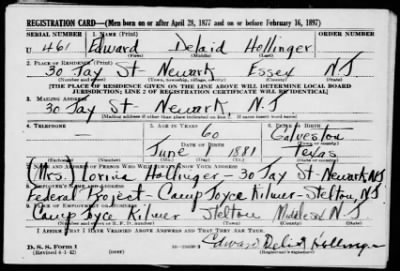 REGISTRATION CARD—(Men born on or after April 28, 1877 and on or before February 16, 1897)
SERIAL NUMBER 1. NAME (Print) ORDER NUMBER
U 461 Edward Delaid Hollinger
(First) (Middle) (Last)
2. PLACE OF RESIDENCE (Print)
30 Jay St- Newark Essex N.J
(Number and street) (Town, township, village, or city) (County) (State)
[THE PLACE OF RESIDENCE GIVEN ON THE LINE ABOVE WILL DETERMINE LOCAL BOARD
JURISDICTION; LINE 2 OF REGISTRATION CERTIFICATE WILL BE IDENTICAL]
3. MAILING ADDRESS
30 Jay St- Newark, N.J
[Mailing address if other than place indicated on line 2. If same insert word same]
4. TELEPHONE 5. AGE IN YEARS 6. PLACE OF BIRTH
— 60 Galveston
DATE OF BIRTH (Town or county)
June 1 1881 Texas
(Exchange) (Number) (Mo.) (Day) (Yr.) (State or country)
7. NAME AND ADDRESS OF PERSON WHO WILL ALWAYS KNOW YOUR ADDRESS
(Mrs.) Hollinger- 30 Jay St- Newark NJ
8. EMPLOYER'S NAME AND ADDRESS
Federal Project- Camp Joyce Kilmer- Stelton, NJ
9. PLACE OF EMPLOYMENT OR BUSINESS
Camp Joyce Kilmer Stelton Middlesex N.J
(Number and street or R. F. D. number) (Town) (County) (State)
I AFFIRM THAT I HAVE VERIFIED ABOVE ANSWERS AND THAT THEY ARE TRUE.
D. S. S. Form 1
(Revised 4-1-42) (over) Edward Delaid Hollinger
(Registrant's signature)